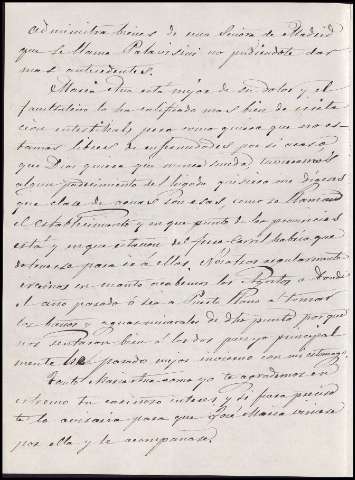 Administra bienes de una Señora de Madrid
que se llama Palavisini no pudiendote dar
mas antecedentes.
Maria Ana está mejor de su dolor y el
facultativo lo ha calificado mas bien de irrita
cion intestinal; pero como quiera que no es
tamos libres de enfermedades por si acaso
que Dios quiera que nunca suceda, tuvieramos
algun padecimiento del higado quisiera me digeras
que clase de aguas son esas, como se llama
el establecimiento y en que punto de las provincias
está y en que estacion del ferro-carril habria que
detenerse para ir á ellas. Nosotros regularmente
iremos en cuanto acabemos los á donde
el año pasado ó sea á Puerto á tomar
los baños y aguas minerales de dho punto porque
nos sentaron bien á los dos porque principal
mente he pasado mejor invierno con mi estomago.
Tanto Mariana como yo te agradecemos en
estremo tu cariñoso interes y si fuera preciso
te lo avisaria para que José Maria viniese
por ella y le acompañase.